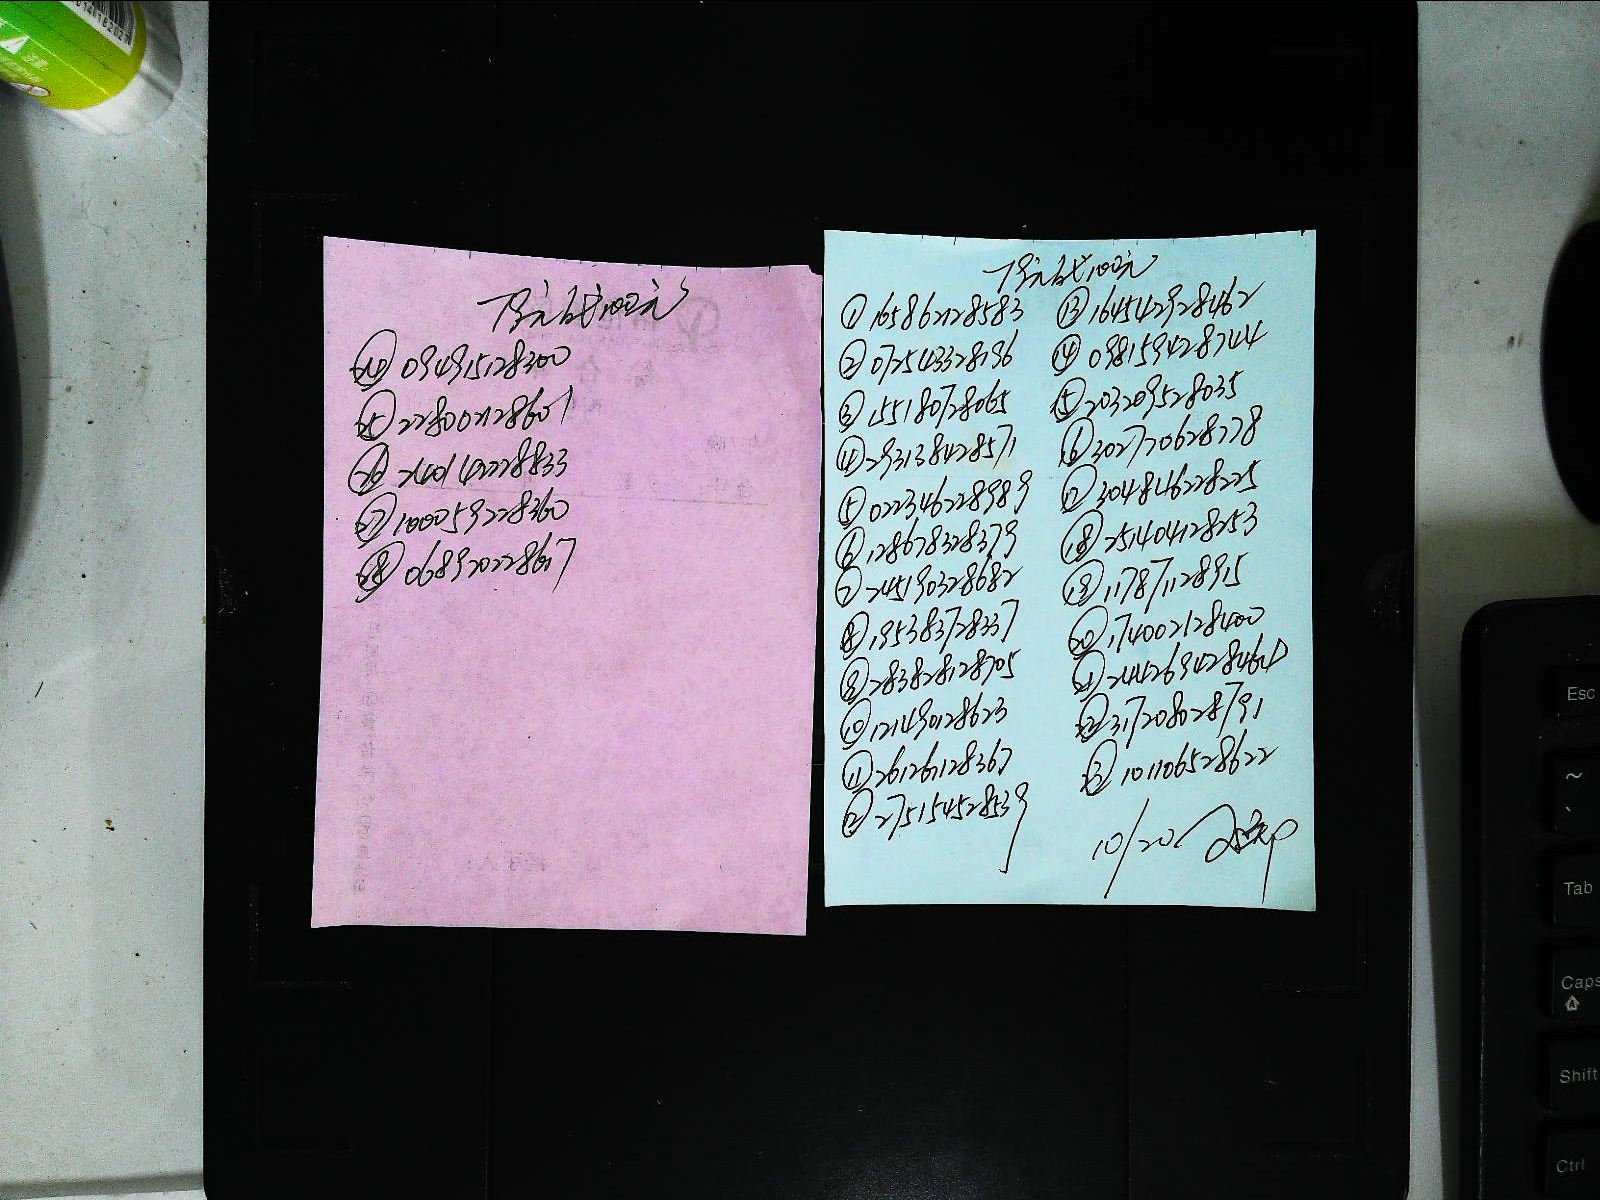 ㉔ 094915128300
㉕ 228002128601
㉖ 240142228833
㉗ 100059228360
㉘ 068920228617
① 165862128583
② 072543328196
③ 155180728065
④ 293138428571
⑤ 022346228989
⑥ 128678328379
⑦ 245190328682
⑧ 195383728337
⑨ 283828128705
⑩ 121490128623
⑪ 261261128367
⑫ 275154528539
⑬ 164542928462
⑭ 098159428744
⑮ 203209528035
⑯ 302770628778
⑰ 304846228225
⑱ 251404128253
⑲ 117871128915
⑳ 174002128400
㉑ 244269428460
㉒ 317208028791
㉓ 101106528622
10/20
Esc
~
Tab
Caps
Shift
Ctrl